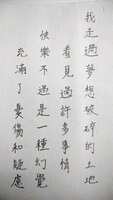 我走過夢想破碎的土地
看見過許多事情
快樂不過是一種幻覺
充滿了憂傷和疑慮